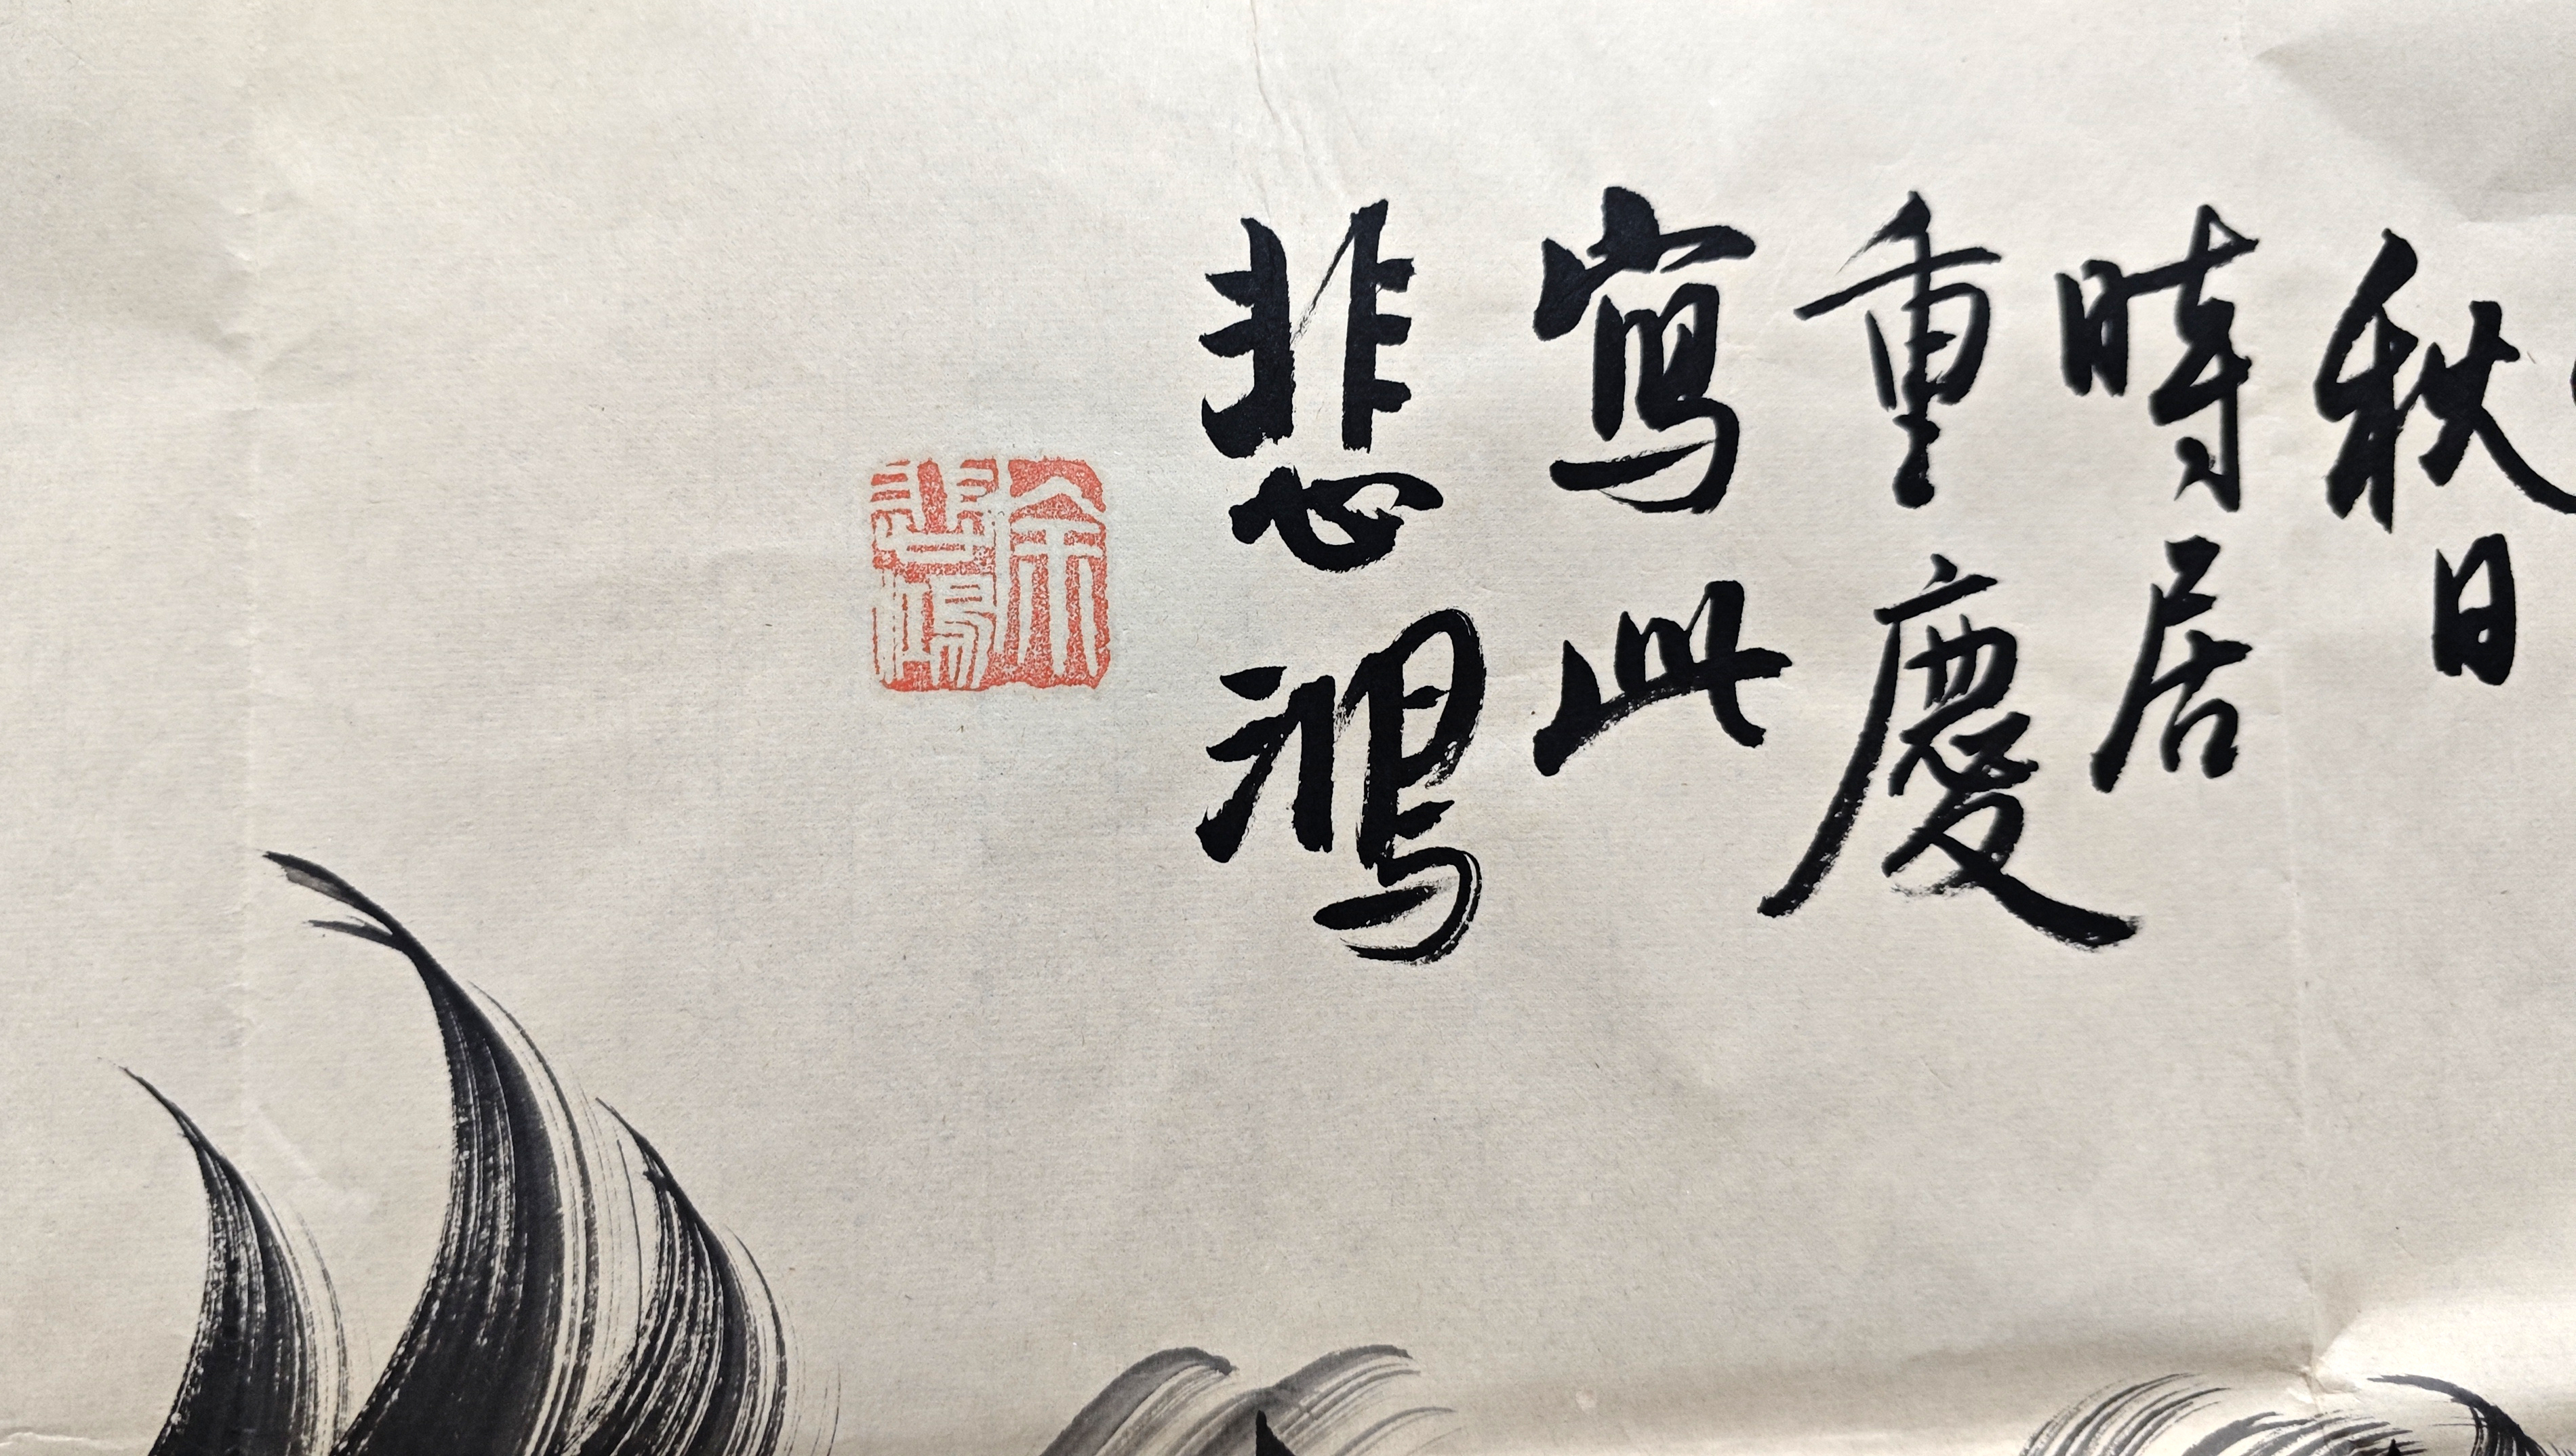 秋日
時居
重慶
寫此
悲鴻
徐悲鴻